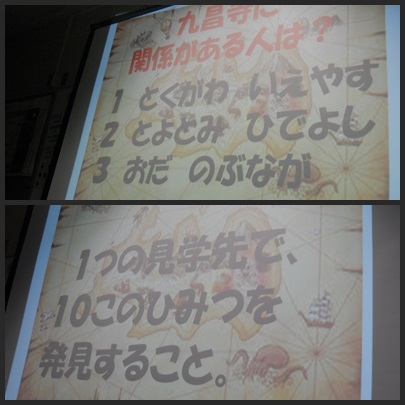 九昌寺に
関係がある人は？
1 とくがわ いえやす
2 とよとみ ひでよし
3 おだ のぶなが
1つの見学先で、
10このひみつを
発見すること。